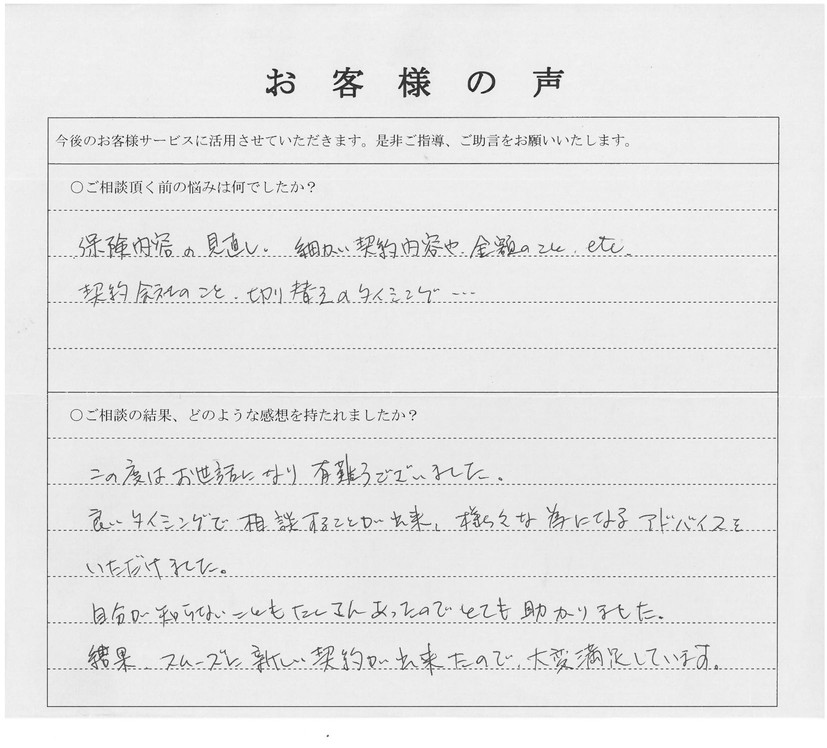 お客様の声
今後のお客様サービスに活用させていただきます。是非ご指導、ご助言をお願いいたします。
○ご相談頂く前の悩みは何でしたか？
保険内容の見直し. 細かい契約内容や.金額のこと. etc.
契約会社のこと.切り替えのタイミング…
○ご相談の結果、どのような感想を持たれましたか？
この度はお世話になり有難うございました。
良いタイミングで相談することが出来、様々な為になるアドバイスを
いただけました。
自分が知らないこともたくさんあったのでとても助かりました。
結果、スムーズに新しい契約が出来たので、大変満足しています。